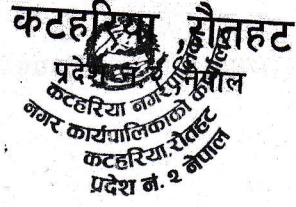 कटहरिया रौतहट
प्रदेश नं. २, नेपाल
कटहरिया नगरपालिका
नगर कार्यपालिकाको कार्यालय
कटहरिया, रौतहट
प्रदेश नं. २ नेपाल